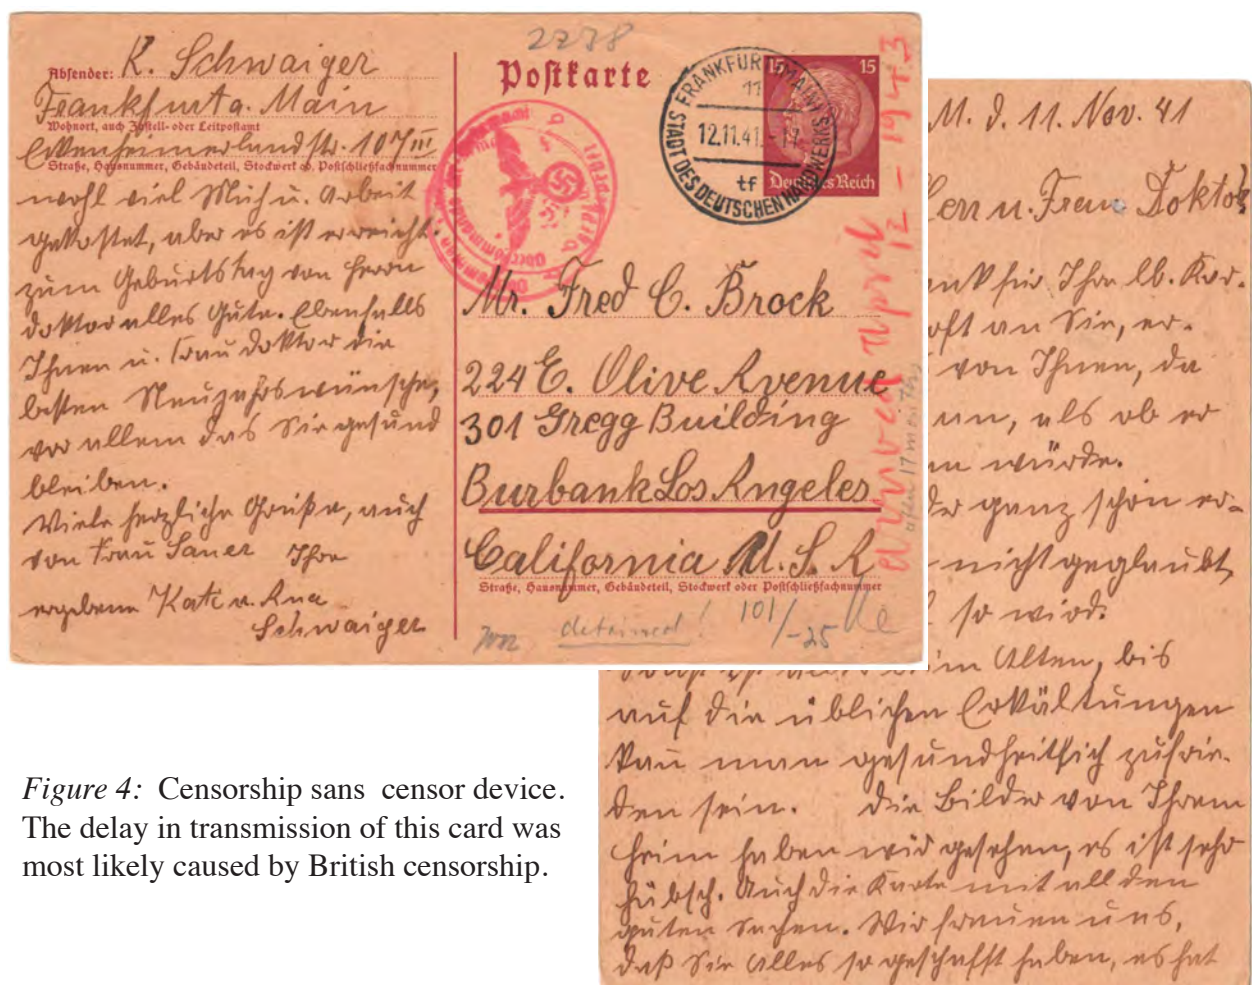 2778
Absender: K. Schwaiger
Frankfurt a. Main
Wohnort, auch Zustell- oder Leitpostamt
Eckenheimerlandstr. 107 III
Straße, Hausnummer, Gebäudeteil, Stockwerk od. Postschließfachnummer
wohl viel Müh u. Arbeit
gekostet, aber es ist erreicht.
zum Geburtstag von Herrn
Doktor alles Gute. Ebenfalls
Ihnen u. Frau Doktor die
besten Neujahrswünsche,
vor allem das Sie gesund
bleiben.
Viele herzliche Grüße, auch
von Frau Sauer Ihre
ergebene Kate u.
Schwaiger
Postkarte
FRANKFURT MAIN
11
12.11.41.
tf
STADT DES DEUTSCHEN HANDWERKS
15 15
Deutsches Reich
Oberkommando
Mr. Fred C. Brock
224 E. Olive Avenue
301 Gregg Building
Burbank Los Angeles
California U.S.A
Straße, Hausnummer, Gebäudeteil, Stockwerk oder Postschließfachnummer
detained! 101/-25
arrived april
12 - 1943
M. d. 11. Nov. 41
Herrn u. Frau Doktor
für Ihre lb. Kar-
oft an Sie, er-
von Ihnen, da
als ob er
würde.
ganz schön er-
nicht geglaubt,
so wird.
beim Alten, bis
auf die üblichen Erkältungen
kann man gesundheitlich zufrie-
den sein. Die Bilder von Ihrem
Heim haben wir gesehen, es ist sehr
hübsch. Auch die Karte mit all den
guten Sachen. Wir freuen uns,
daß Sie Alles so geschafft haben, es hat
Figure 4: Censorship sans censor device.
The delay in transmission of this card was
most likely caused by British censorship.